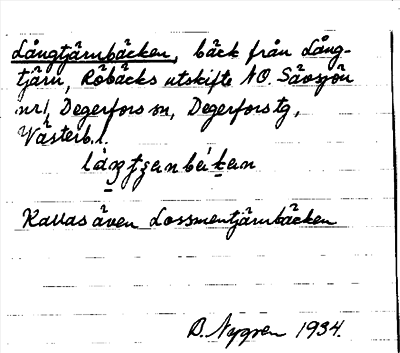 Långtjärnbäcken, bäck från Lång-
tjärn, Röbäcks utskifte NO. Sävsjön
nr1, Degerfors sn, Degerfors tg,
Västerb.l.
Kallas även Lossmentjärnbäcken
B. Nygren 1934.